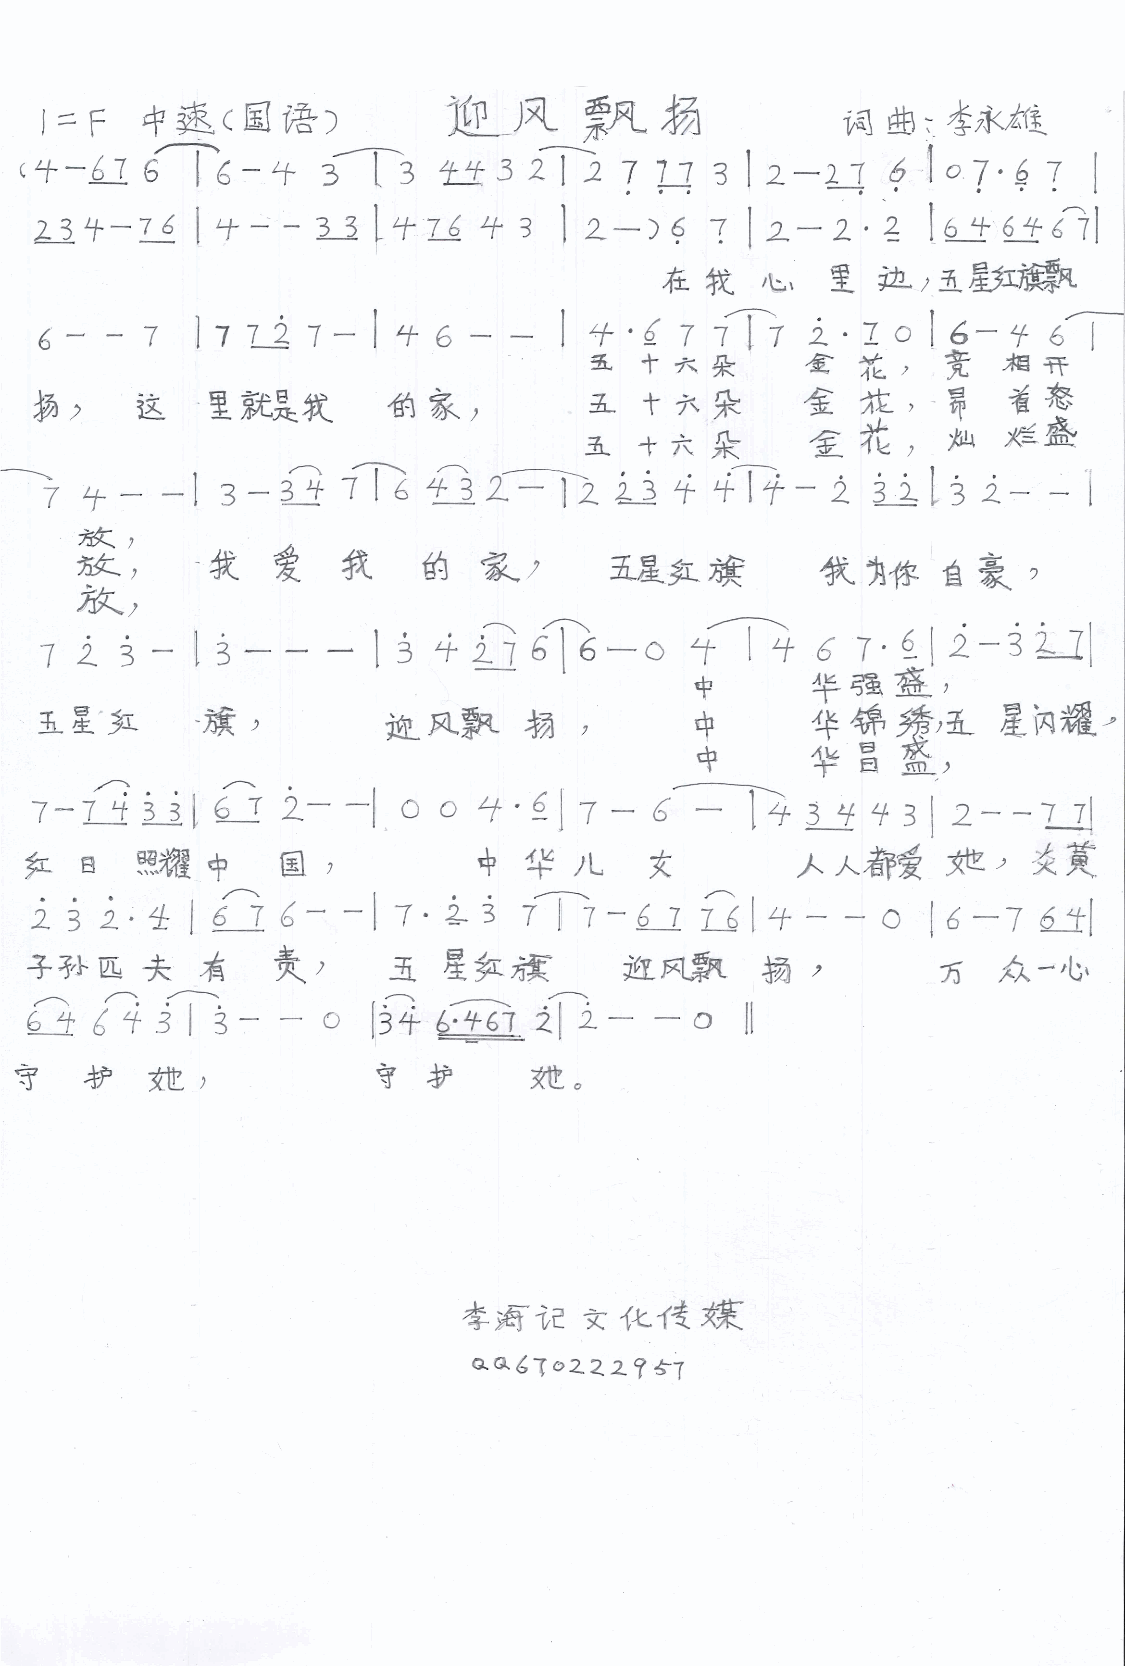 1=F 中速(国语) 迎风飘扬 词曲:李永雄
(4-67 6 | 6-4 3 | 3 44 3 2 | 2 7 77 3 | 2-27 6 | 0 7·6 7 |
234-76 | 4--33 | 476 43 | 2-)6 7 | 2-2·2 | 646467|
在我心里边,五星红旗飘
6--7 | 7727- | 46-- | 4·677 | 7 2·70 | 6-46 |
五十六朵 金花,竞相开
扬,这里就是我的家,五十六朵 金花,昂首怒
五十六朵 金花,灿烂盛
7 4--| 3-347 | 6 432- | 2 23 4 4 | 4-2 32 | 3 2--|
放,
放,我爱我的家,五星红旗 我为你自豪,
放,
7 2 3- | 3--- | 3 4 27 6 | 6-0 4 | 4 6 7·6 | 2-327|
中 华强盛,
五星红旗,迎风飘扬,中 华锦绣,五星闪耀,
中 华昌盛,
7-7433| 67 2--| 0 0 4·6| 7-6- | 4 3443| 2--77|
红日照耀中国,中华儿女 人人都爱她,炎黄
2 3 2·4 | 676--| 7·2 3 7 | 7-67 76 | 4--0 | 6-7 64|
子孙匹夫有责,五星红旗 迎风飘扬,万众一心
64 6 4 3 | 3--0 |34 6·467 2| 2--0 ‖
守护她,守护她。
李海记文化传媒
QQ670222957